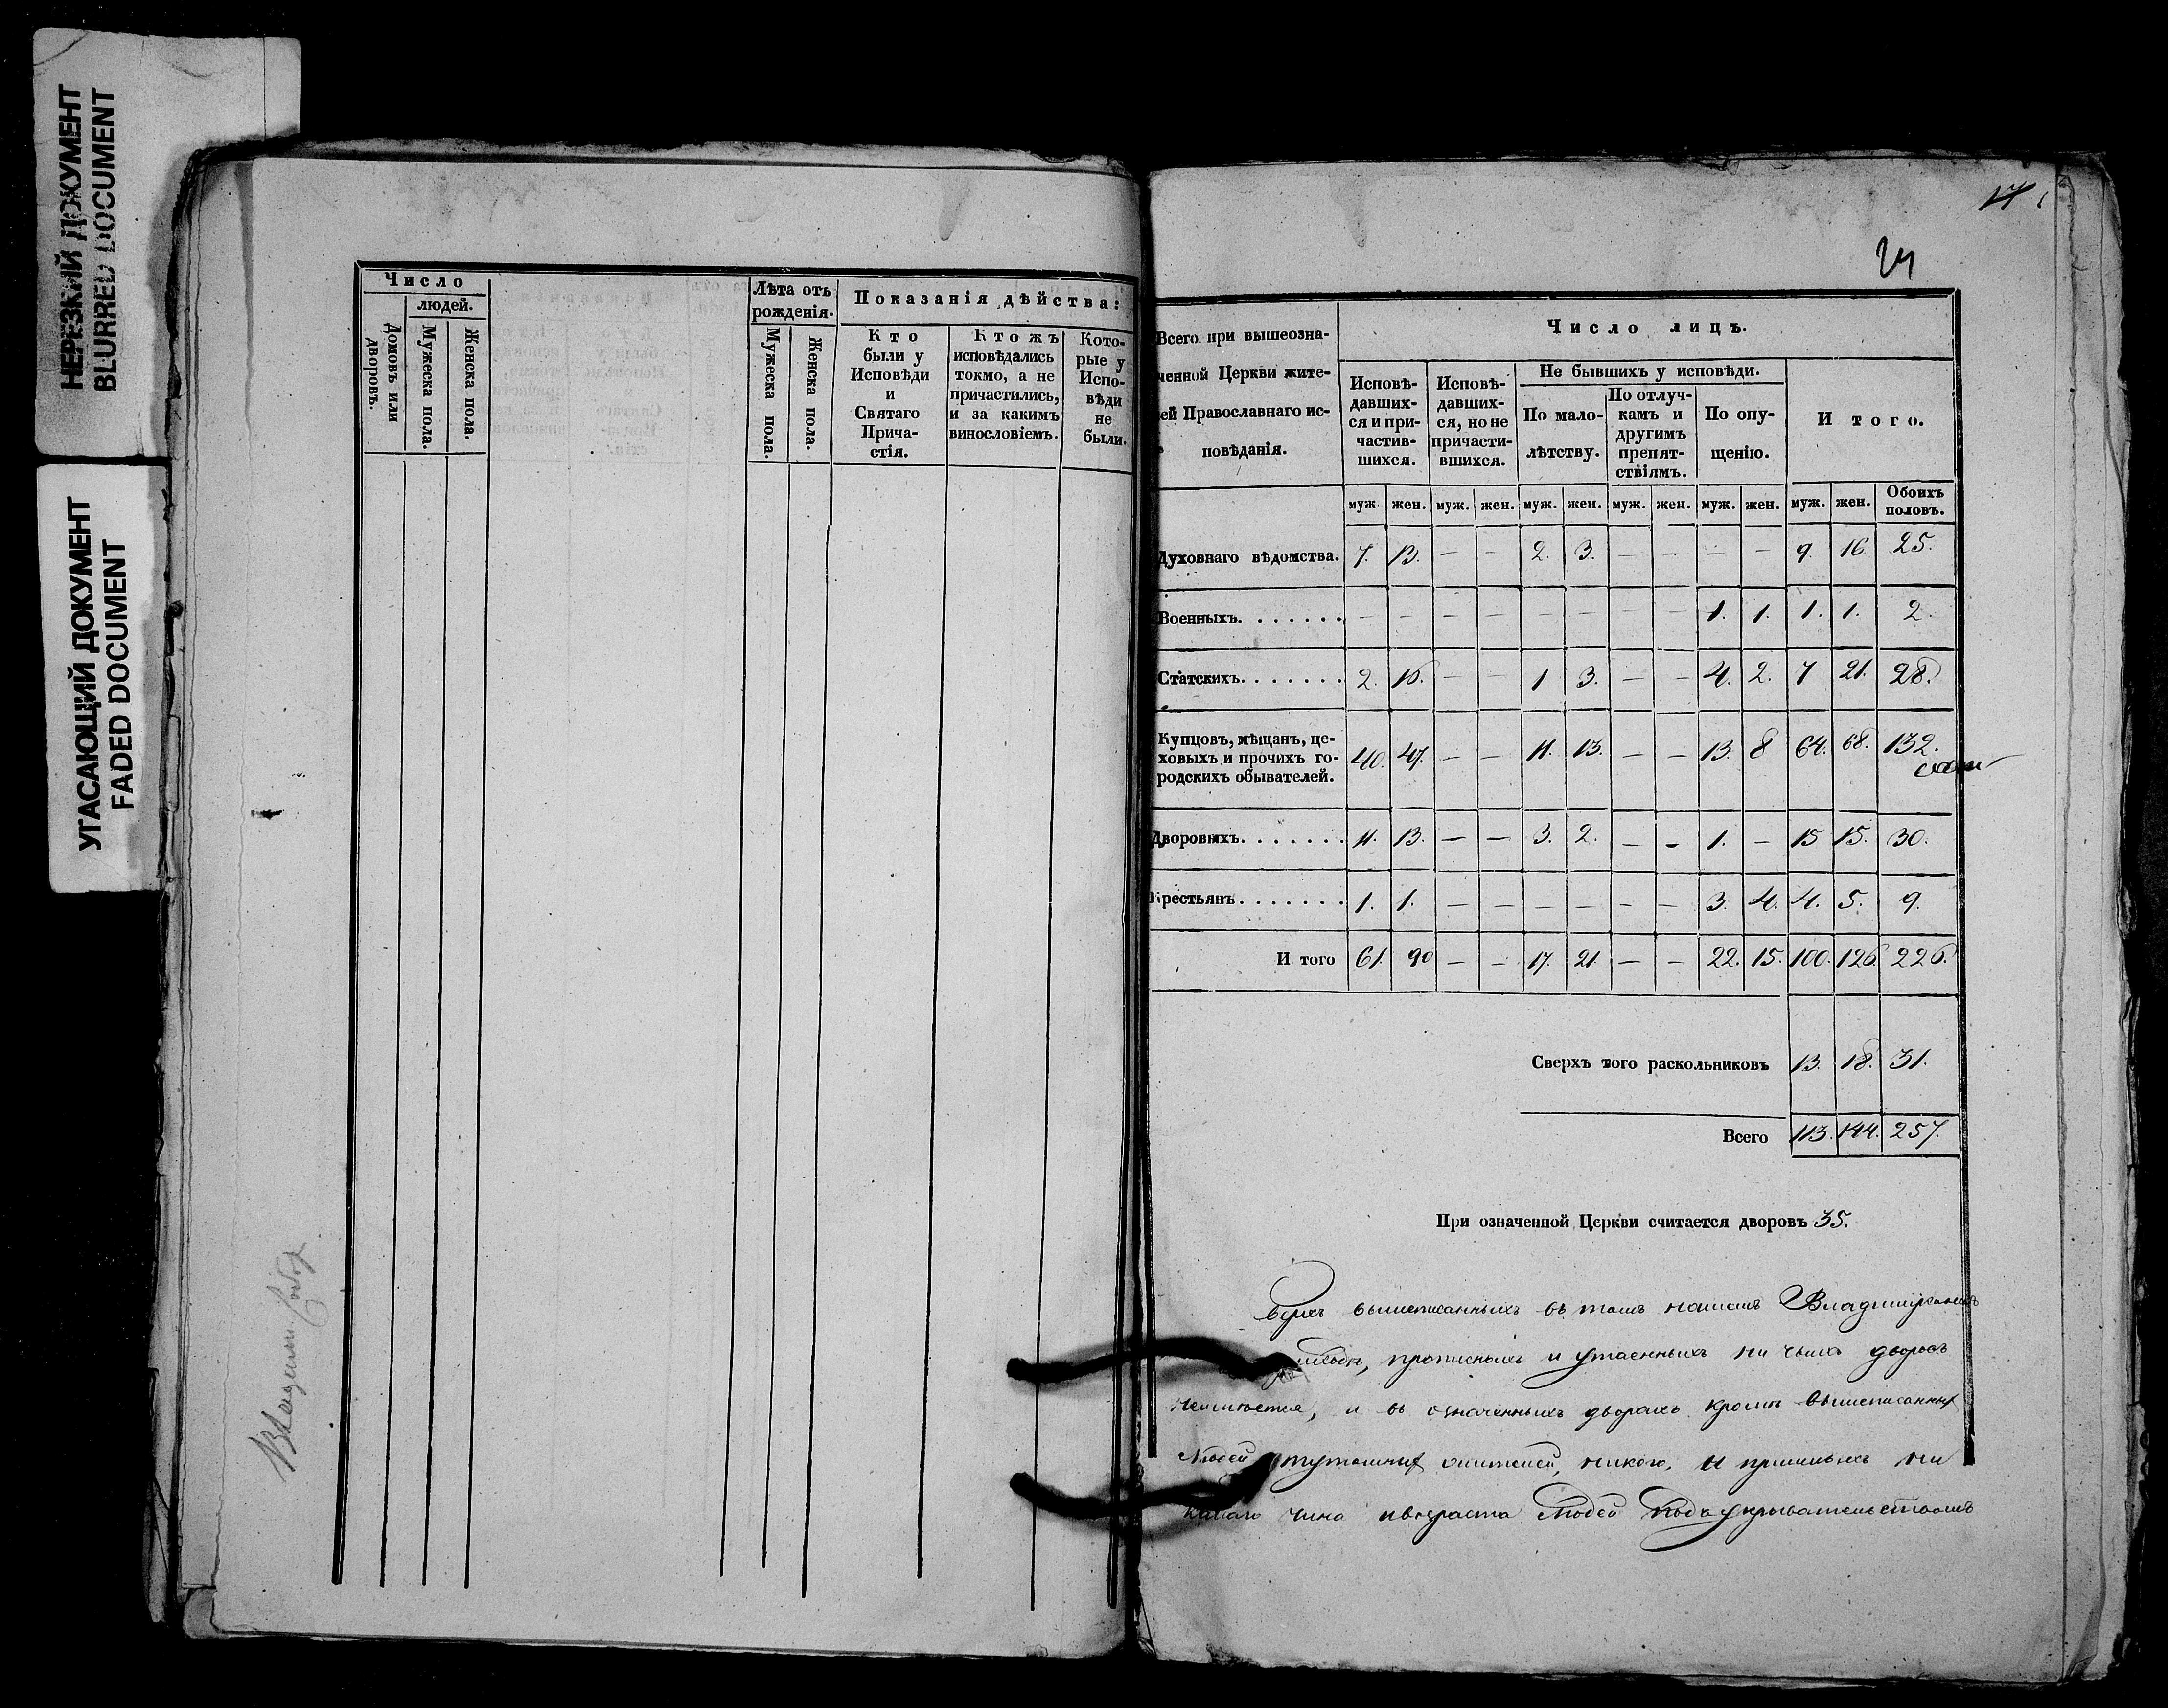 НЕРЕЗКИЙ ДОКУМЕНТ
BLURRED DOCUMENT
УГАСАЮЩИЙ ДОКУМЕНТ
FADED DOCUMENT
Число
людей.
Домовъ или дворовъ.
Мужеска пола.
Женска пола.
Лѣта отъ рожденія.
Мужеска пола.
Женска пола.
Показанія дѣйства:
Кто
были у
Исповѣди
и
Святаго
Прича-
стія.
Ктожъ
исповѣдались
токмо, а не
причастились,
и за какимъ
винословіемъ.
Кото-
рые у
Испо-
вѣди
не
были.
17
24
Всего при вышеозна-
ченной Церкви жите-
ей Православнаго ис-
повѣданія.
Число лицъ.
Исповѣ-
давших-
ся и при-
частив-
шихся.
Исповѣ-
давших-
ся, но не
причасти-
вшихся.
Не бывшихъ у исповѣди.
По мало-
лѣтству.
По отлуч-
камъ и
другимъ
препят-
ствіямъ.
По опу-
щенію.
И того.
муж. жен. муж. жен. муж. жен. муж. жен. муж. жен. муж. жен. Обоихъ половъ.
Духовнаго вѣдомства. 7. 13. — — 2. 3. — — — — 9. 16. 25.
Военныхъ. . . . . . . — — — — — — — — 1. 1. 1. 1. 2.
Статскихъ. . . . . . . 2. 16. — — 1 3. — — 4. 2. 7 21. 28.
Купцовъ, мѣщанъ, це-
ховыхъ и прочихъ го-
родскихъ обывателей. 40. 47. — — 11. 13. — — 13. 8 64. 68. 132.
Дворовыхъ. . . . . . . 11. 13. — — 3. 2. — — 1. — 15 15. 30.
Крестьянъ . . . . . . . 1. 1. — — — — — — 3. 4. 4. 5. 9.
И того 61. 90 — — 17. 21 — — 22. 15. 100. 126. 226.
Сверхъ того раскольниковъ 13. 18. 31.
Всего 113. 144. 257.
При означенной Церкви считается дворовъ 35.
вышеписанныхъ въ томъ нашемъ
прописныхъ и утаенныхъ ни чьихъ дворовъ
неимѣется, и въ означенныхъ дворахъ кромѣ вышеписанных
Людей тутошних жителей, никого, и пришлыхъ ни
какого чина и возраста Людей подъ укрывательствомъ